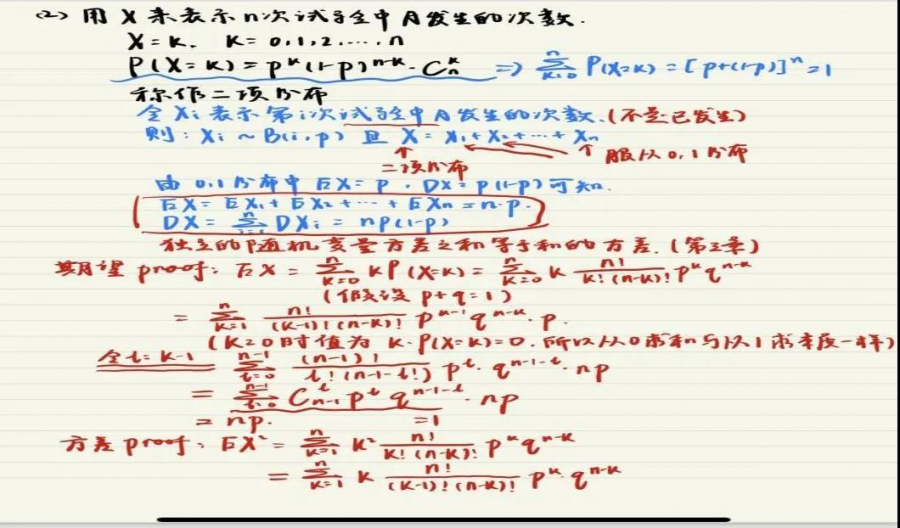 (2) 用 X 来表示 n 次试验中 A 发生的次数.
X=k, k=0,1,2,…,n
P(X=k)=p^k(1-p)^{n-k}·C_n^k => \sum_{k=0}^{n} P(X=k)=[p+(1-p)]^n=1
称作二项分布
令 Xi 表示第 i 次试验中 A 发生的次数.(不是已发生)
则: Xi ~ B(i,p) 且 X = X_1+X_2+…+X_n
↑ 二项分布 ↑ 服从 0,1 分布
由 0,1 分布中 EX=p, DX=p(1-p) 可知.
EX = EX_1+EX_2+…+EX_n = n·p.
DX = \sum_{i=1}^{n} DX_i = np(1-p)
独立的随机变量方差之和等于和的方差.(第三章)
期望 proof: EX = \sum_{k=0}^{n} kP(X=k) = \sum_{k=0}^{n} k \frac{n!}{k!(n-k)!} p^k q^{n-k}
(假设 p+q=1)
= \sum_{k=1}^{n} \frac{n!}{(k-1)!(n-k)!} p^{k-1} q^{n-k}·p.
(k=0 时值为 k·P(X=k)=0. 所以从 0 求和与从 1 求一样)
令 t=k-1 \sum_{t=0}^{n-1} \frac{(n-1)!}{t!(n-1-t!)} p^t·q^{n-1-t}·np
= \sum_{t=0}^{n-1} C_{n-1}^t p^t q^{n-1-t}·np
= np. =1
方差 proof: EX² = \sum_{k=1}^{n} k² \frac{n!}{k!(n-k)!} p^k q^{n-k}
= \sum_{k=1}^{n} k \frac{n!}{(k-1)!(n-k)!} p^k·q^{n-k}